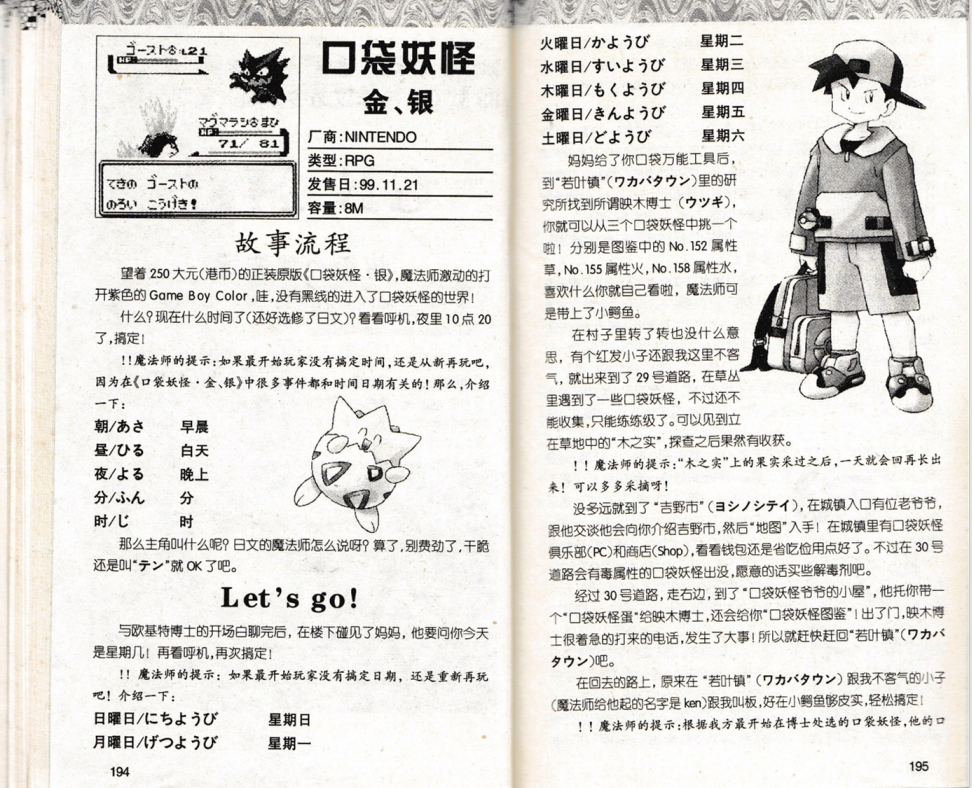 ゴースト♂:L21
HP
マグマラシ♂まひ
HP
71/ 81
てきの ゴーストの
のろい こうげき!
口袋妖怪
金、银
厂商:NINTENDO
类型:RPG
发售日:99.11.21
容量:8M
故事流程
望着250大元(港币)的正装原版《口袋妖怪·银》,魔法师激动的打
开紫色的Game Boy Color,哇,没有黑线的进入了口袋妖怪的世界!
什么?现在什么时间了(还好选修了日文)?看看呼机,夜里10点20
了,搞定!
!!魔法师的提示:如果最开始玩家没有搞定时间,还是从新再玩吧,
因为在《口袋妖怪·金、银》中很多事件都和时间日期有关的!那么,介绍
一下:
朝/あさ 早晨
昼/ひる 白天
夜/よる 晚上
分/ふん 分
时/じ 时
那么主角叫什么呢?日文的魔法师怎么说呀?算了,别费劲了,干脆
还是叫“テン”就OK了吧。
Let's go!
与欧基特博士的开场白聊完后,在楼下碰见了妈妈,他要问你今天
是星期几!再看呼机,再次搞定!
!!魔法师的提示:如果最开始玩家没有搞定日期,还是重新再玩
吧!介绍一下:
日曜日/にちようび 星期日
月曜日/げつようび 星期一
194
火曜日/かようび 星期二
水曜日/すいようび 星期三
木曜日/もくようび 星期四
金曜日/きんようび 星期五
土曜日/どようび 星期六
妈妈给了你口袋万能工具后,
到“若叶镇”(ワカバタウン)里的研
究所找到所谓映木博士(ウツギ),
你就可以从三个口袋妖怪中挑一个
啦!分别是图鉴中的No.152属性
草,No.155属性火,No.158属性水,
喜欢什么你就自己看啦,魔法师可
是带上了小鳄鱼。
在村子里转了转也没什么意
思,有个红发小子还跟我这里不客
气,就出来到了29号道路,在草丛
里遇到了一些口袋妖怪,不过还不
能收集,只能练练级了。可以见到立
在草地中的“木之实”,探查之后果然有收获。
!!魔法师的提示:“木之实”上的果实采过之后,一天就会回再长出
来!可以多多采摘呀!
没多远就到了“吉野市”(ヨシノシテイ),在城镇入口有位老爷爷,
跟他交谈他会向你介绍吉野市,然后“地图”入手!在城镇里有口袋妖怪
俱乐部(PC)和商店(Shop),看看钱包还是省吃俭用点好了。不过在30号
道路会有毒属性的口袋妖怪出没,愿意的话买些解毒剂吧。
经过30号道路,走右边,到了“口袋妖怪爷爷的小屋”,他托你带一
个“口袋妖怪蛋”给映木博士,还会给你“口袋妖怪图鉴”!出了门,映木博
士很着急的打来的电话,发生了大事!所以就赶快赶回“若叶镇”(ワカバ
タウン)吧。
在回去的路上,原来在“若叶镇”(ワカバタウン)跟我不客气的小子
(魔法师给他起的名字是ken)跟我叫板,好在小鳄鱼够皮实,轻松搞定!
!!魔法师的提示:根据我方最开始在博士处选的口袋妖怪,他的口
195